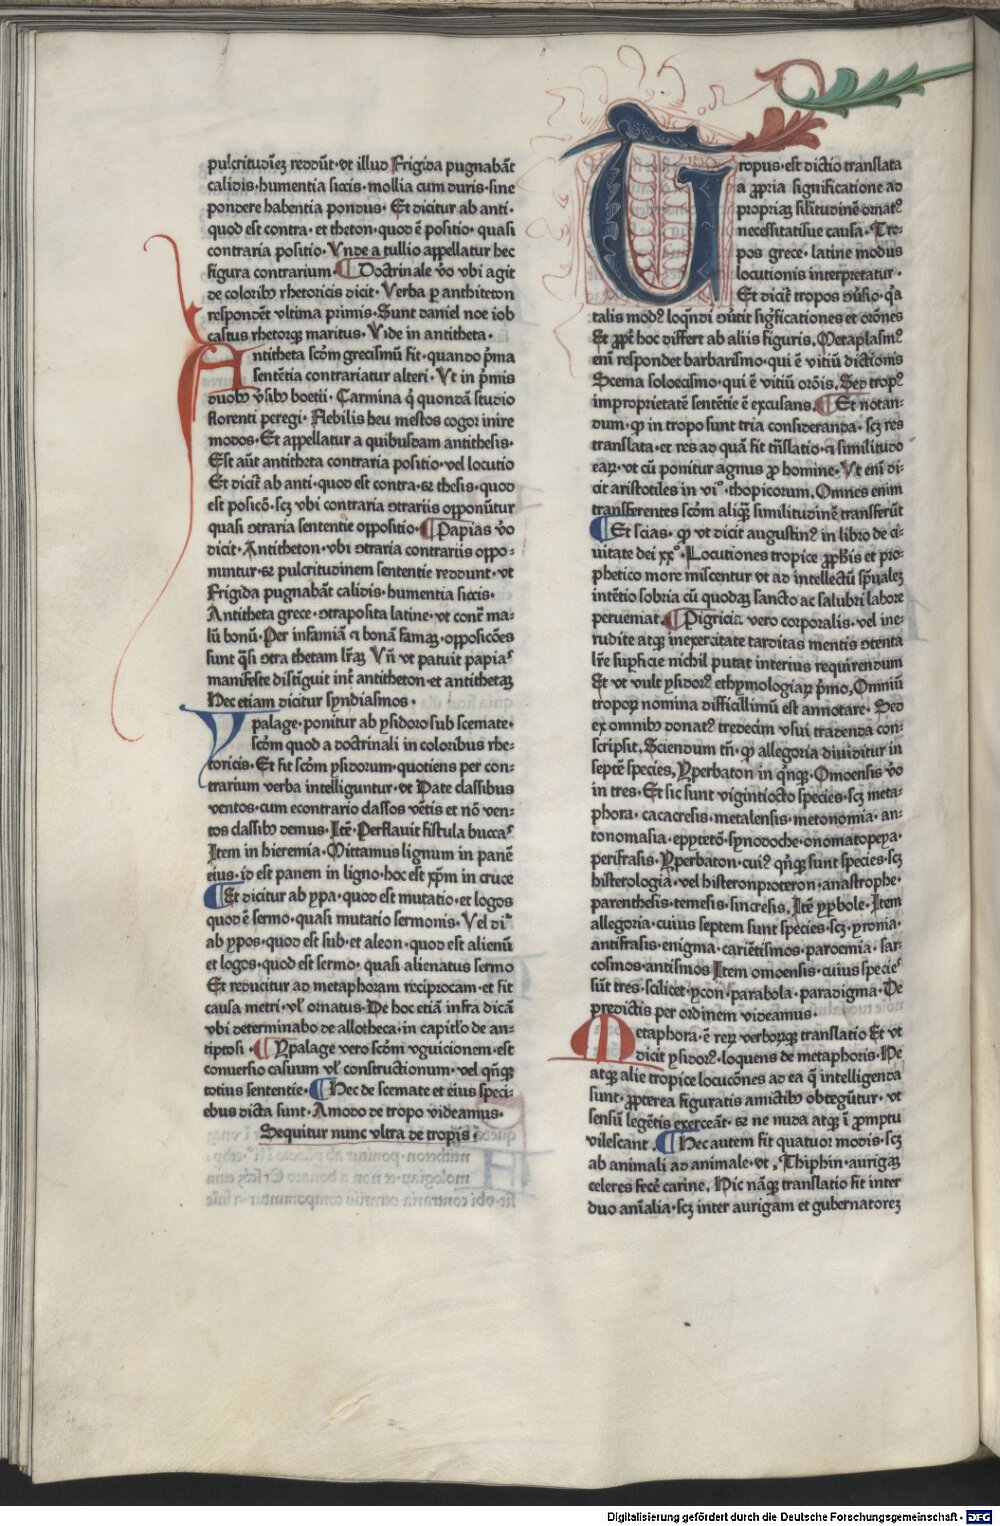 pulcritudinez reddūt·vt illud Frigida pugnabāt
calidis·humentia siccis·mollia cum duris·sine
pondere habentia pondus· Et dicitur ab anti·
quod est contra·et theton·quod ē positio·quasi
contraria positio·Vnde a tullio appellatur hec
figura contrarium·¶Doctrinale v̄o vbi agit
de coloribꝰ rhetoricis dicit·Verba p antithiteton
respondēt vltima primis·Sunt daniel noe iob
castus rhetorqꝫ maritus·Vide in antitheta·
Antitheta scōm grecismū fit·quando p̄ma
sentētia contrariatur alteri·Vt in p̄mis
duobꝰ v̄sibꝰ boetii·Carmina q̄ quondā studio
florenti peregi·Flebilis heu mestos cogoꝛ inire
modos·Et appellatur a quibusdam antithesis·
Est aūt antitheta contraria positio·vel locutio
Et dicit̄ ab anti·quod est contra·⁊ thesis·quod
est posicō·scꝫ vbi contraria ↄtrariis opponūtur
quasi ↄtraria sententie oppositio·¶Papias v̄o
dicit·Antitheton·vbi ↄtraria contrariis oppo⸗
nuntur·⁊ pulcritudinem sententie reddunt·vt
Frigida pugnabāt calidis·humentia siccis·
Antitheta grece·ↄtraposita latine·vt cont̄ ma⸗
lū bonū·Per infamiā ⁊ bonā famaꝫ·opposicōes
sunt q̄si ↄtra thetam lr̄aꝫ Vn̄ vt patuit papiaˢ
manifeste distiguit int̄ antitheton·et antithetaꝫ
Hec etiam dicitur syndiasmos·
Ypalage·ponitur ab ysidoro sub scemate·
scōm quod a doctrinali in coloribus rhe⸗
toricis·Et fit scōm ysidorum·quotiens per con⸗
trarium verba intelliguntur·vt Date classibus
ventos·cum econtrario classos vētis et nō ven⸗
tos classibꝰ demus·Itē·Perflauit fistula buccaˢ
Item in hieremia·Mittamus lignum in panē
eius·id est panem in ligno·hoc est xp̄m in cruce
¶Et dicitur ab ypa·quod est mutatio·et logos
quod ē sermo·quasi mutatio sermonis·Vel di᷑
ab ypos·quod est sub·et aleon·quod est alienū
et logos·quod est sermo·quasi alienatus sermo
Et reducitur ad metaphoram reciprocam·et fit
causa metri·vl̓ ornatus·De hoc etiā infra dicā
vbi determinabo de allotheca·in capitl̓o de an⸗
tiptosi·¶Ypalage vero scōm vguicionem·est
conuersio casuum vl̓ constructionum·vel qn̄qꝫ
totius sententie·¶Hec de scemate et eius speci⸗
ebus dicta sunt·Amodo de tropo videamus·
Sequitur nunc vltra de tropis·
Tropus·est dictio translata
a ꝓpria significatione ad
propriaꝫ silitudinē ornatꝰ
necessitatisue causa·Tro⸗
pos grece·latine modus
locutionis interpretatur·
Et dicit̄ tropos ↄūsio·q̄a
talis modꝰ loqn̄di ↄūtit sigficationes et orōnes
Et ꝓpt̄ hoc differt ab aliis figuris, Metaplasmꝰ
eni respondet barbarismo·qui ē vitiū dictionis
Scema soloecismo·qui ē vitiū orōis, Sed tropꝰ
improprietatē sentētie ē excusans,¶Et notan⸗
dum·ꝙ in tropo sunt tria consideranda·scꝫ res
translata·et res ad quā fit tn̄slatio·⁊ similitudo
eaꝝ·vt cū ponitur agnus ꝓ homine·Vt eni di⸗
cit aristotiles in vi°·thopicorum, Omnes enim
transferentes scōm aliqꝫ similitudinē transferūt
¶Et scias·ꝙ vt dicit augustinꝰ in libro de ci⸗
uitate dei xx°·Locutiones tropice ꝓph̄is et pro⸗
phetico more miscentur vt ad intellectū sp̄ualeꝫ
intētio sobria cū quodaꝫ sancto ac salubri labore
perueniat,¶Pigricia vero corporalis·vel ine⸗
rudite atqꝫ inexercitate tarditas mentis ↄtenta
lr̄e sup̄ficie nichil putat interius requirendum
Et vt vult ysidorꝰ ethymologiaꝝ p̄mo, Omniū
tropoꝝ nomina difficillimū est annotare·Sed
ex omnibꝰ donatꝰ tredecim vsui tradenda con⸗
scripsit, Sciendum tn̄·ꝙ allegoria diuiditur in
septē species, Yperbaton in qn̄qꝫ·Omoensis v̄o
in tres·Et sic sunt vigintiocto species·scꝫ meta⸗
phora·cacacresis·metalensis·metonomia·an⸗
tonomasia·epytetō·synodoche·onomatopeya·
perifrasis·Yperbaton·cuiꝰ qn̄qꝫ sunt species·scꝫ
histerologia·vel histeronproteron·anastrophe·
parenthesis·temesis·sincresis, Itē yꝑbole·Item
allegoria·cuius septem sunt species·scꝫ·yronia·
antifrasis·enigma·cariētismos·paroemia·sar⸗
cosmos·antismos Item omoensis·cuius specieˢ
sūt tres·scilicet ycon·parabola·paradigma·De
predictis per ordinem videamus·
Metaphora·ē reꝝ verboꝝqꝫ translatio Et vt
dicit ysidorꝰ·loquens de metaphoris·He
atqꝫ alie tropice locucōnes ad ea q̄ intelligenda
sunt·ꝓpterea figuratis amictibꝰ obtegūtur·vt
sensū legētis exerceāt·⁊ ne nuda atqꝫ ī promptu
vilescant,¶Hec autem fit quatuor modis·scꝫ
ab animali ad animale·vt, Thiphin·aurigaꝫ
celeres fecē carine, Hic nāqꝫ translatio fit inter
duo anīalia·scꝫ inter aurigam et gubernatoreꝫ
Digitalisierung gefördert durch die Deutsche Forschungsgemeinschaft - DFG